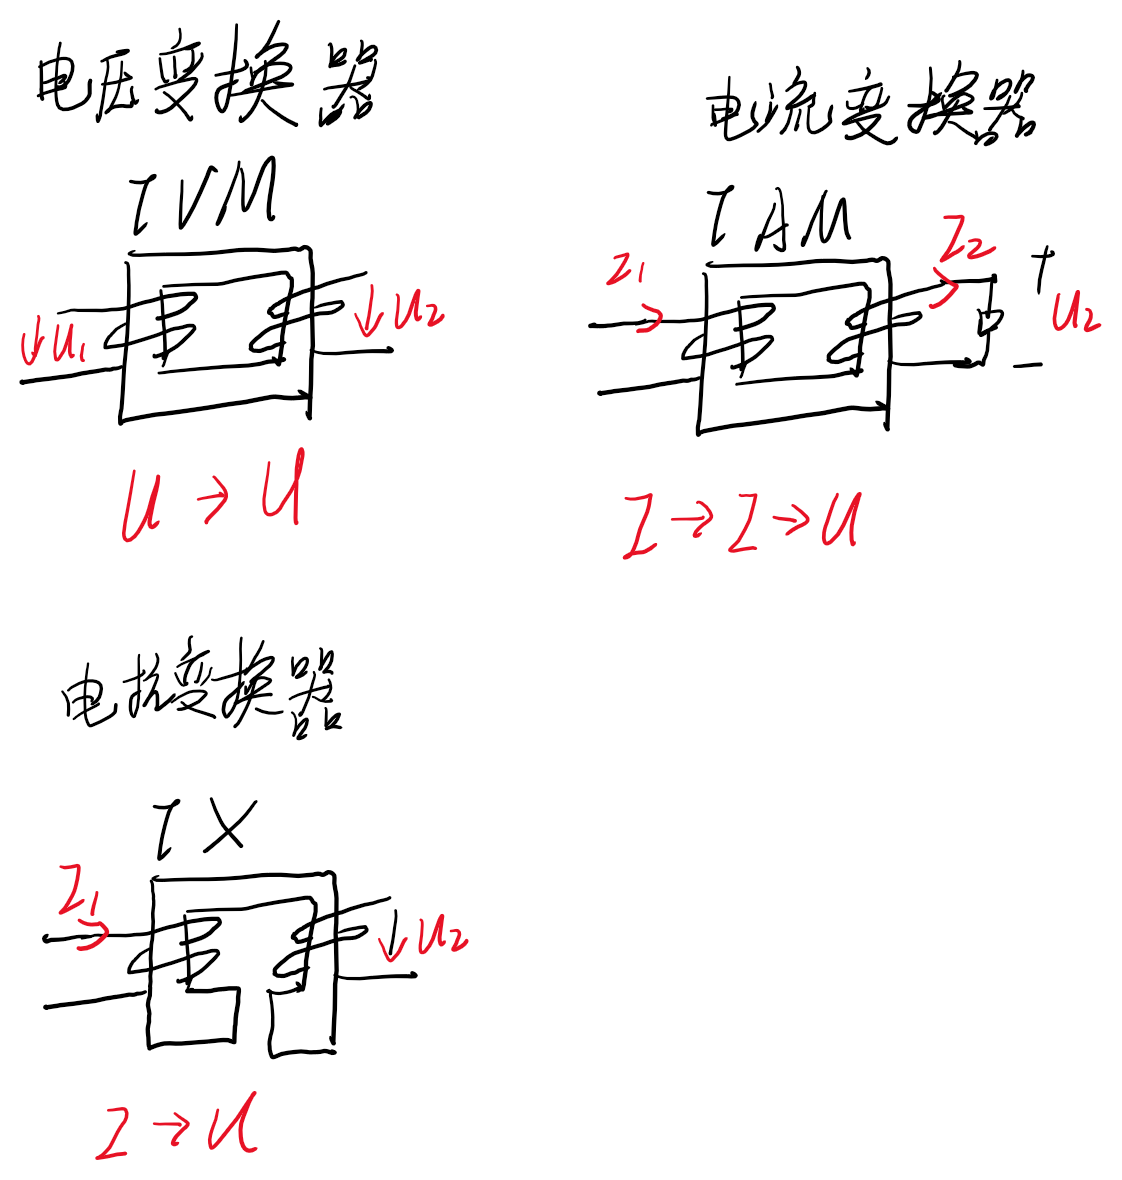 电压变换器
TVM
U₁
U₂
U → U
电流变换器
TAM
I₁
I₂
+
U₂
−
I → I → U
电抗变换器
TX
I₁
U₂
I → U